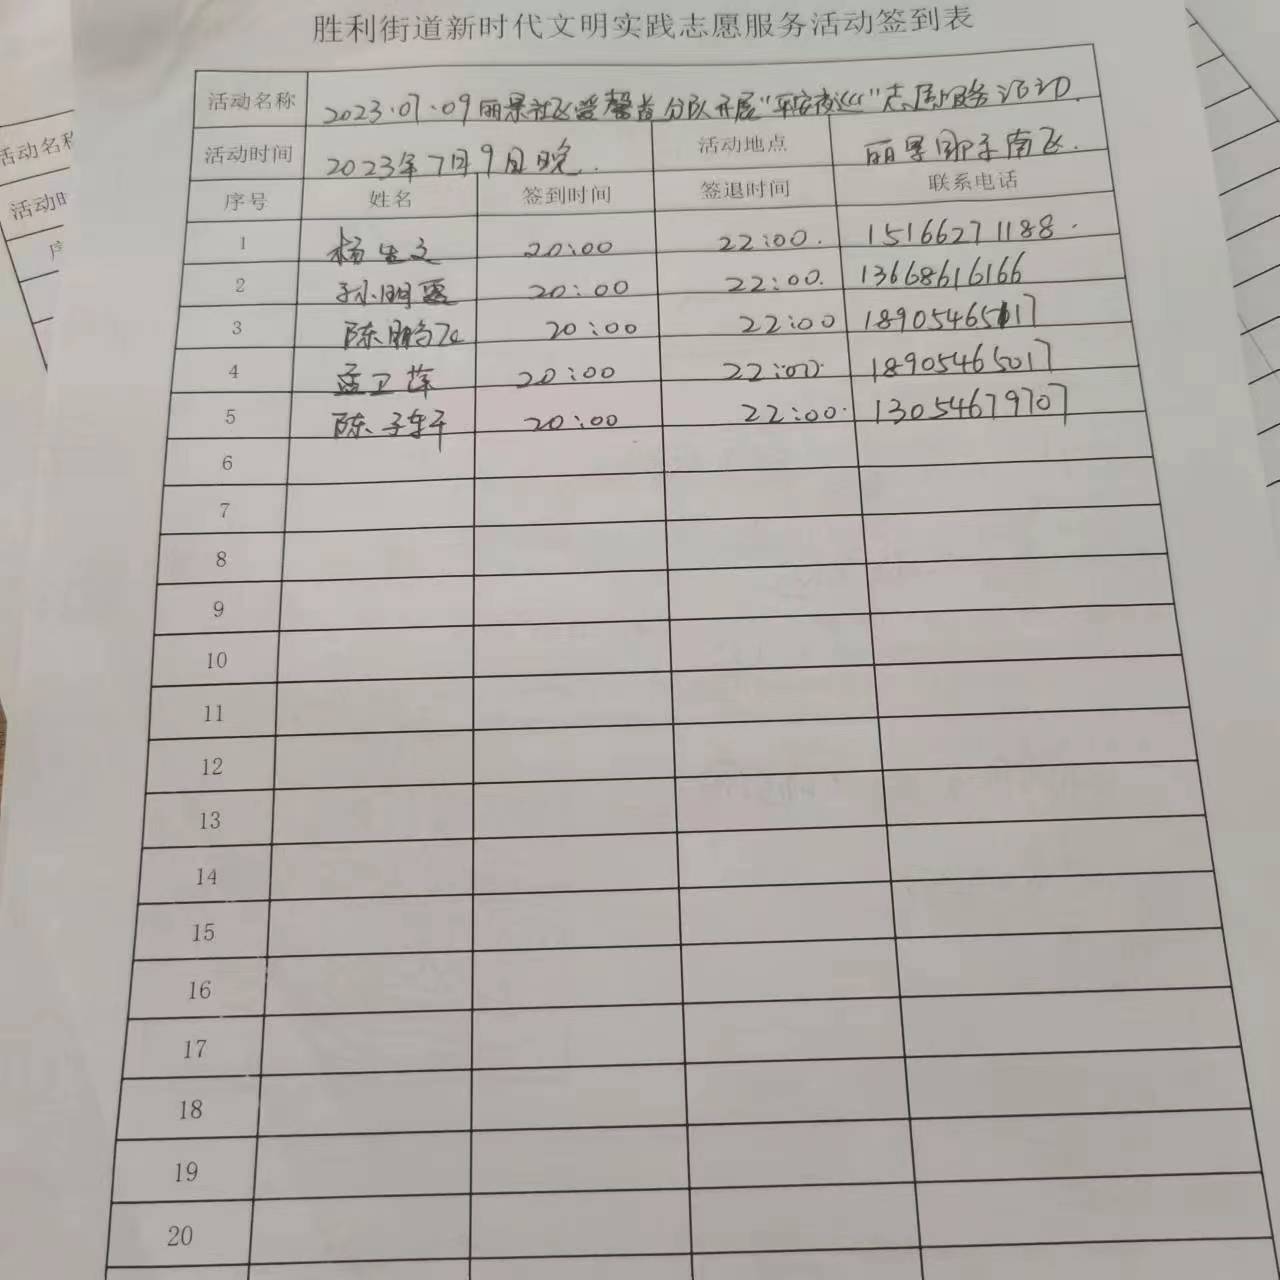 胜利街道新时代文明实践志愿服务活动签到表
活动名称 2023.07.09丽景社区爱馨苑分队开展“平安夜巡”志愿服务活动.
活动时间 2023年7月9日晚. 活动地点 丽景 南飞.
序号 姓名 签到时间 签退时间 联系电话
1 杨生文 20:00 22:00. 15166271188.
2 孙明霞 20:00 22:00. 13668616166
3 陈鹏飞 20:00 22:00 18905465117
4 孟卫萍 20:00 22:00. 18905465017
5 陈子轩 20:00 22:00. 13054679707
6
7
8
9
10
11
12
13
14
15
16
17
18
19
20
活动名称
活动时
序